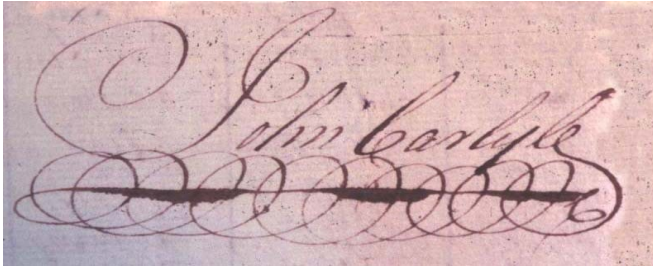 John Carlyle